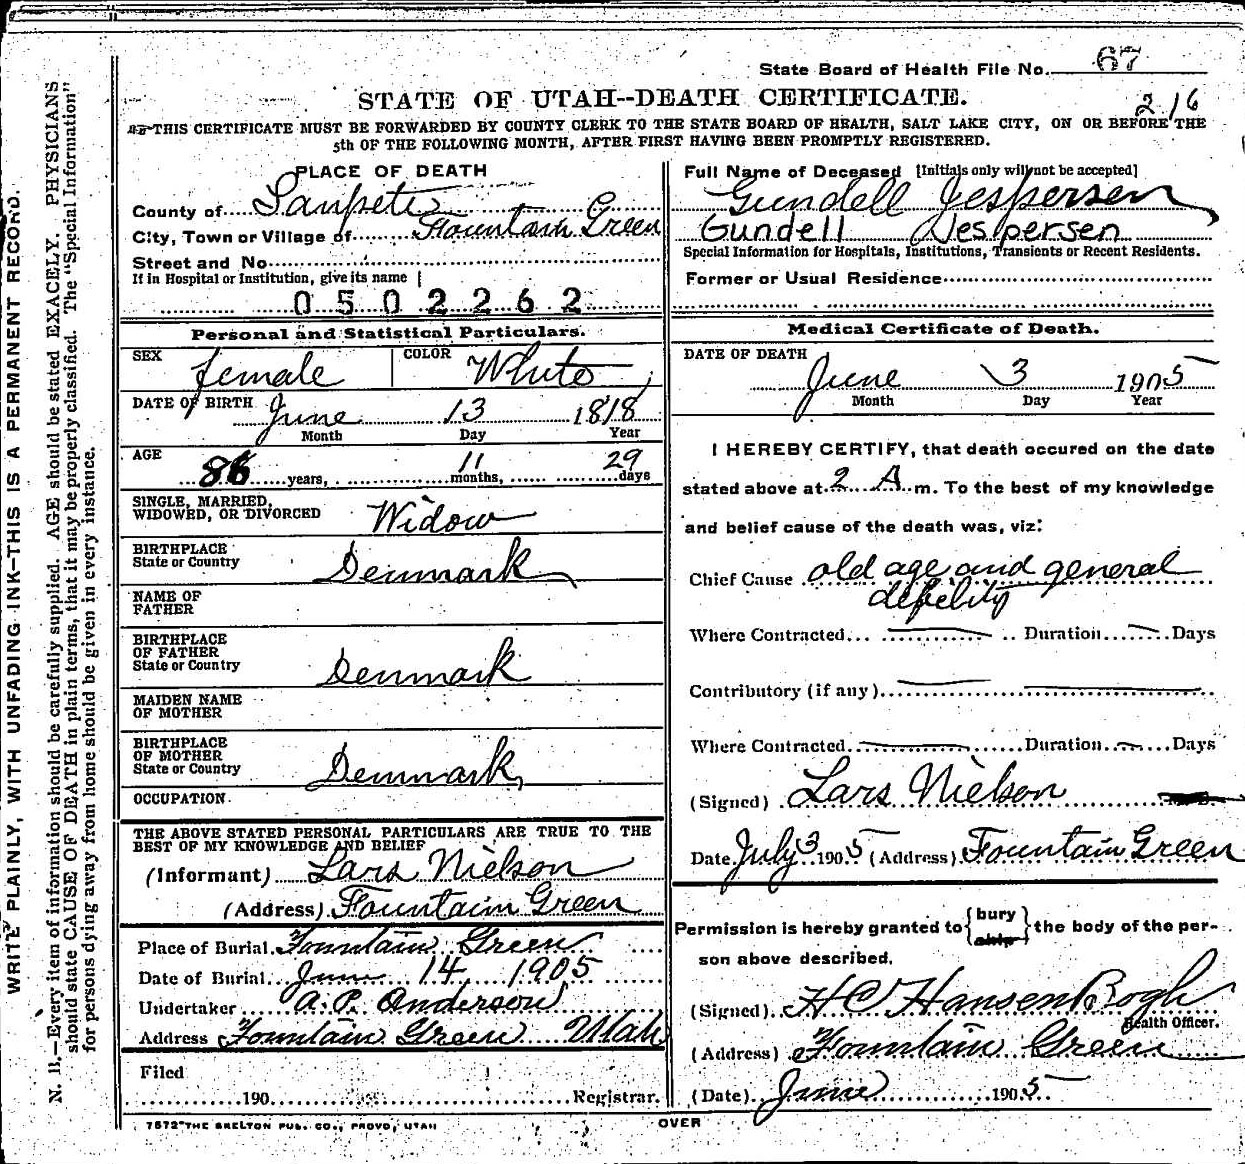 State Board of Health File No. 67
STATE OF UTAH--DEATH CERTIFICATE.
216
THIS CERTIFICATE MUST BE FORWARDED BY COUNTY CLERK TO THE STATE BOARD OF HEALTH, SALT LAKE CITY, ON OR BEFORE THE
5th OF THE FOLLOWING MONTH, AFTER FIRST HAVING BEEN PROMPTLY REGISTERED.
WRITE PLAINLY, WITH UNFADING INK—THIS IS A PERMANENT RECORD.
N. B.—Every item of information should be carefully supplied. AGE should be stated EXACTLY. PHYSICIANS
should state CAUSE OF DEATH in plain terms, that it may be properly classified. The "Special Information"
for persons dying away from home should be given in every instance.
PLACE OF DEATH
County of Sanpete
City, Town or Village of Fountain Green
Street and No.
If in Hospital or Institution, give its name
0502262
Personal and Statistical Particulars.
SEX female COLOR White
DATE OF BIRTH June 13 1818
Month Day Year
AGE 86 years, 11 months, 29 days
SINGLE, MARRIED,
WIDOWED, OR DIVORCED Widow
BIRTHPLACE
State or Country Denmark
NAME OF
FATHER
BIRTHPLACE
OF FATHER
State or Country Denmark
MAIDEN NAME
OF MOTHER
BIRTHPLACE
OF MOTHER
State or Country Denmark
OCCUPATION
THE ABOVE STATED PERSONAL PARTICULARS ARE TRUE TO THE
BEST OF MY KNOWLEDGE AND BELIEF
(Informant) Lars Nielson
(Address) Fountain Green
Place of Burial Fountain Green
Date of Burial June 14 1905
Undertaker A. P. Anderson
Address Fountain Green Utah
Filed
190 Registrar.
7572 THE SKELTON PUB. CO., PROVO, UTAH
Full Name of Deceased [Initials only will not be accepted]
Gundell Jespersen
Gundell Jespersen
Special Information for Hospitals, Institutions, Transients or Recent Residents.
Former or Usual Residence
Medical Certificate of Death.
DATE OF DEATH
June 3 1905
Month Day Year
I HEREBY CERTIFY, that death occured on the date
stated above at 2 A m. To the best of my knowledge
and belief cause of the death was, viz:
Chief Cause old age and general
defility
Where Contracted Duration Days
Contributory (if any)
Where Contracted Duration Days
(Signed) Lars Nielson
Date July 3 1905 (Address) Fountain Green
Permission is hereby granted to {bury ship} the body of the per-
son above described.
(Signed) H C Hansen Bogh
Health Officer.
(Address) Fountain Green
(Date) June 1905
OVER